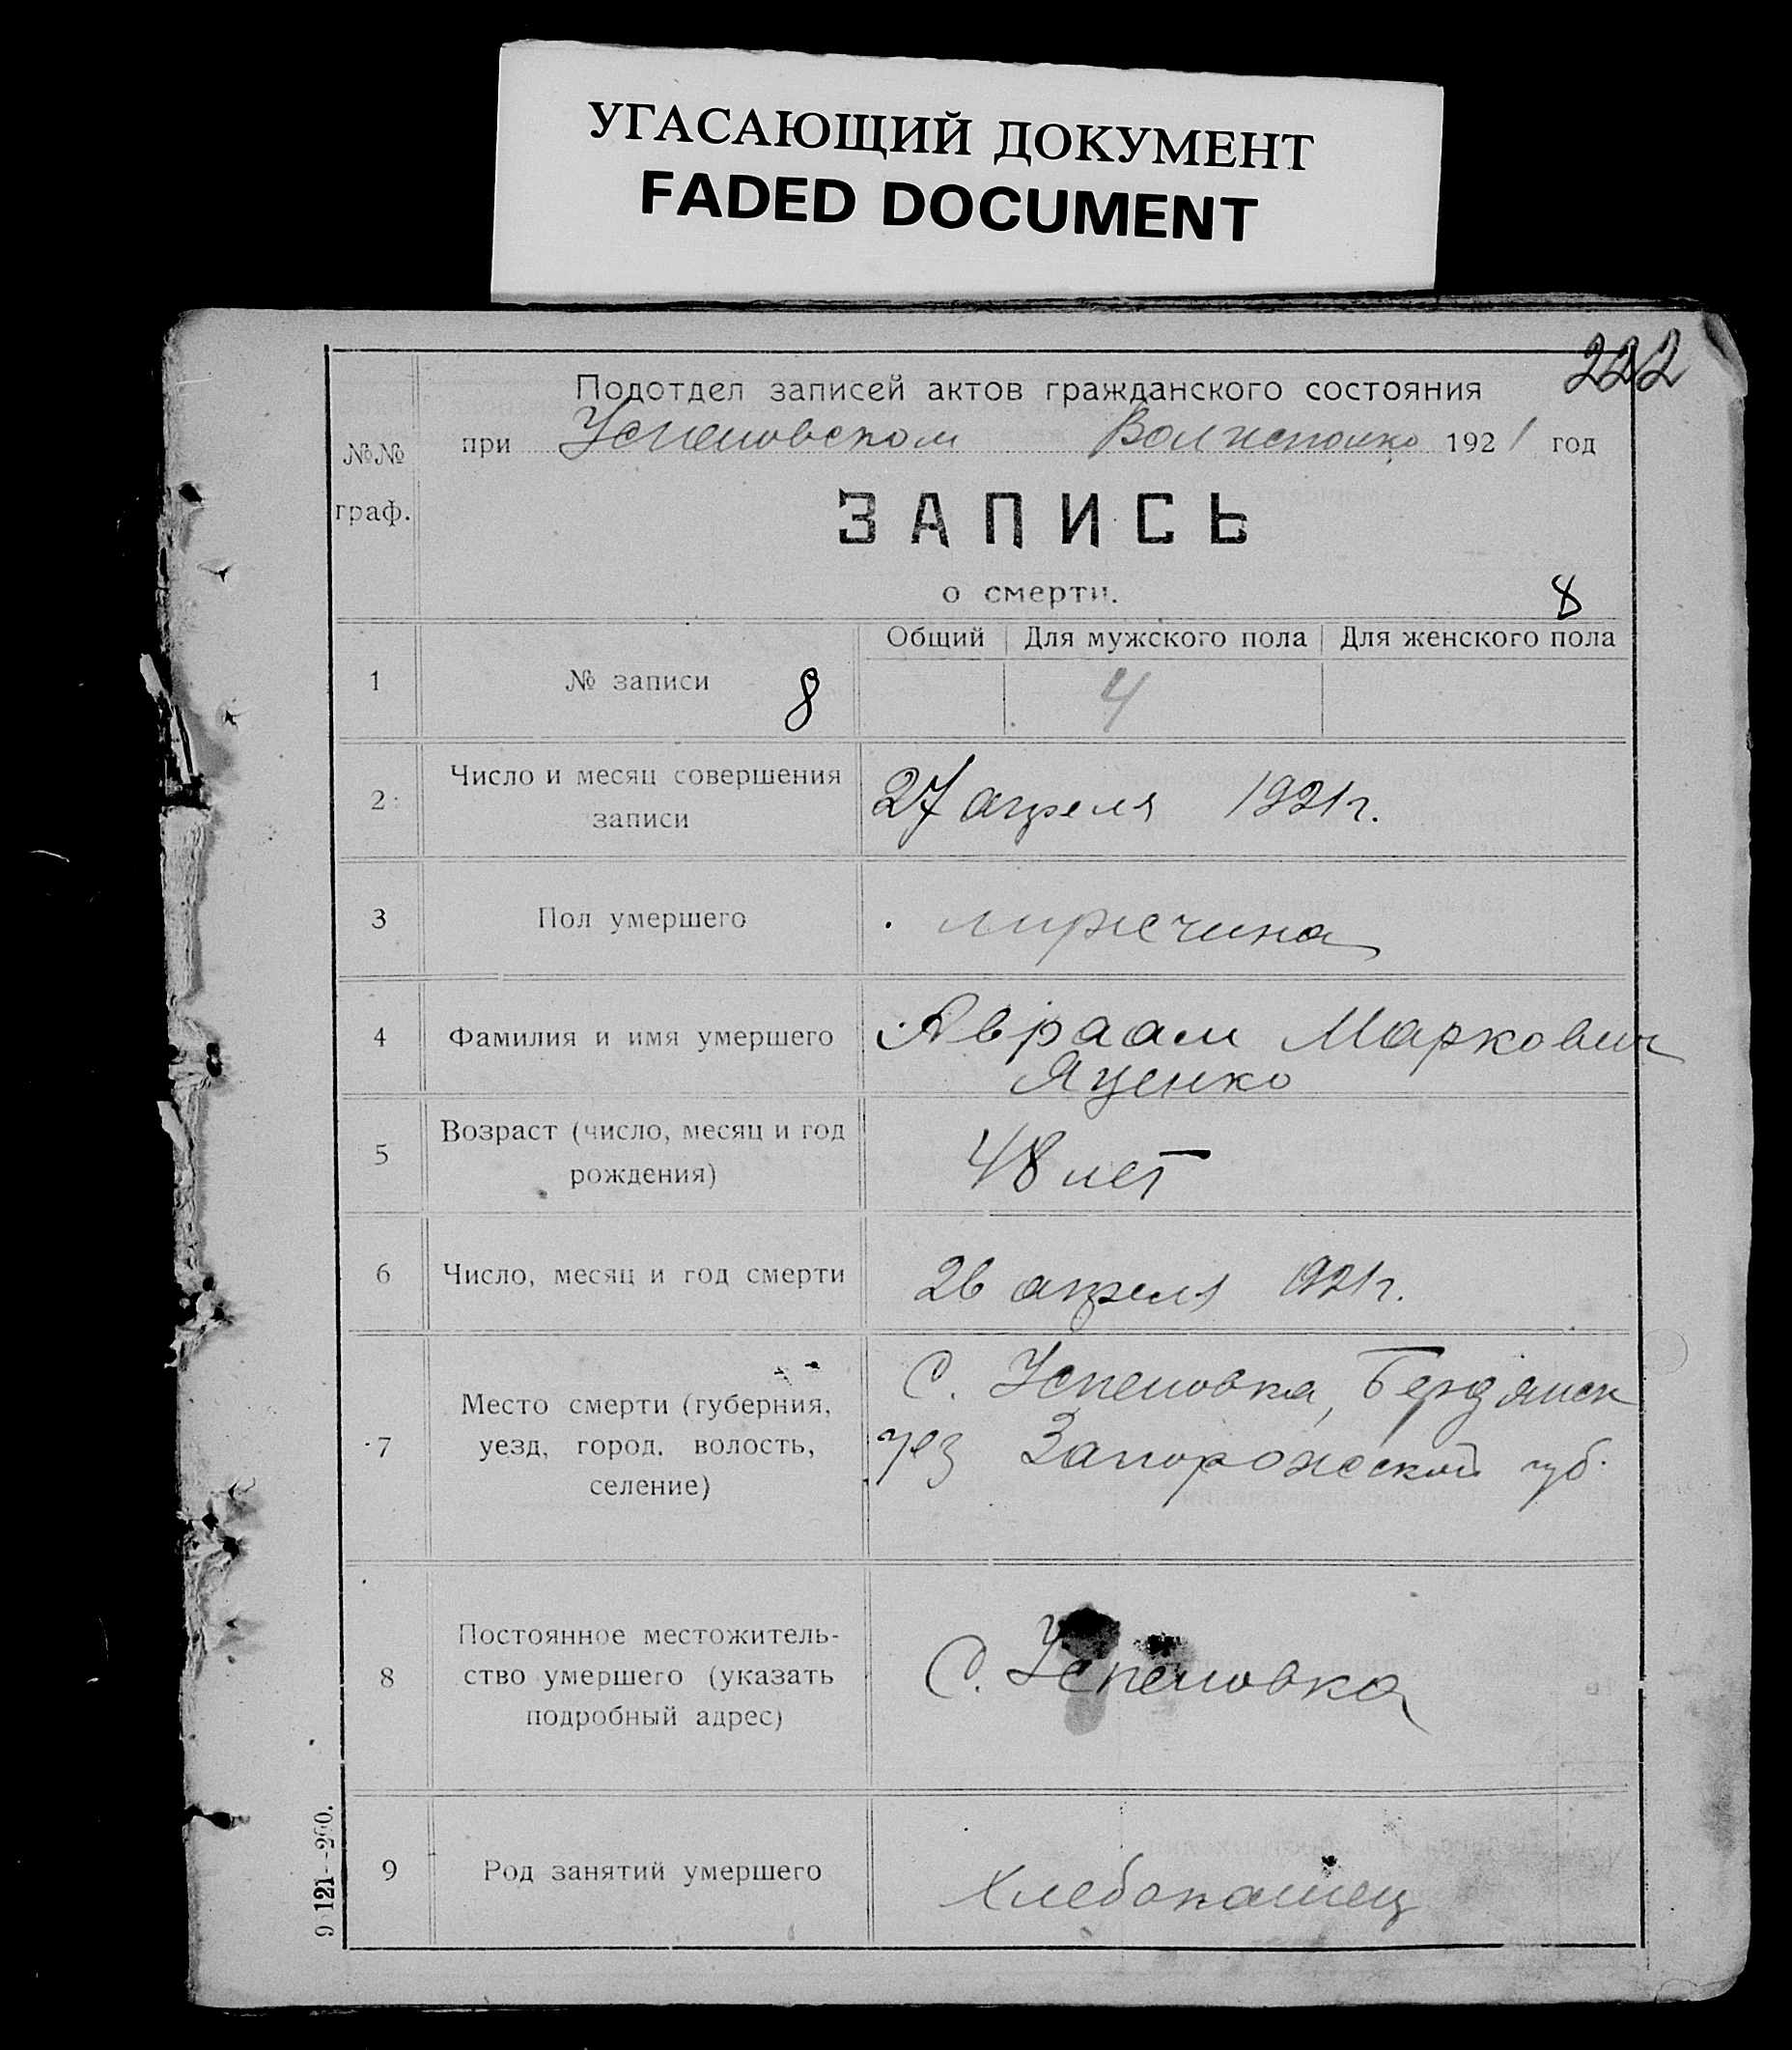 УГАСАЮЩИЙ ДОКУМЕНТ
FADED DOCUMENT
222
Подотдел записей актов гражданского состояния
при Успеновском Волисполко 1921 год
№№
граф.
ЗАПИСЬ
о смерти.
8
Общий Для мужского пола Для женского пола
1 № записи 8 4
2 Число и месяц совершения
записи
27 апреля 1921 г.
3 Пол умершего мужчина
4 Фамилия и имя умершего
Авраам Маркович
Яценко
5 Возраст (число, месяц и год
рождения)
48 лет
6 Число, месяц и год смерти 26 апреля 921 г.
7 Место смерти (губерния,
уезд, город, волость,
селение)
С. Успеновка, Бердянск
уез Запорожской губ.
8 Постоянное местожитель-
ство умершего (указать
подробный адрес)
С. Успеновка
9 Род занятий умершего хлебопашец